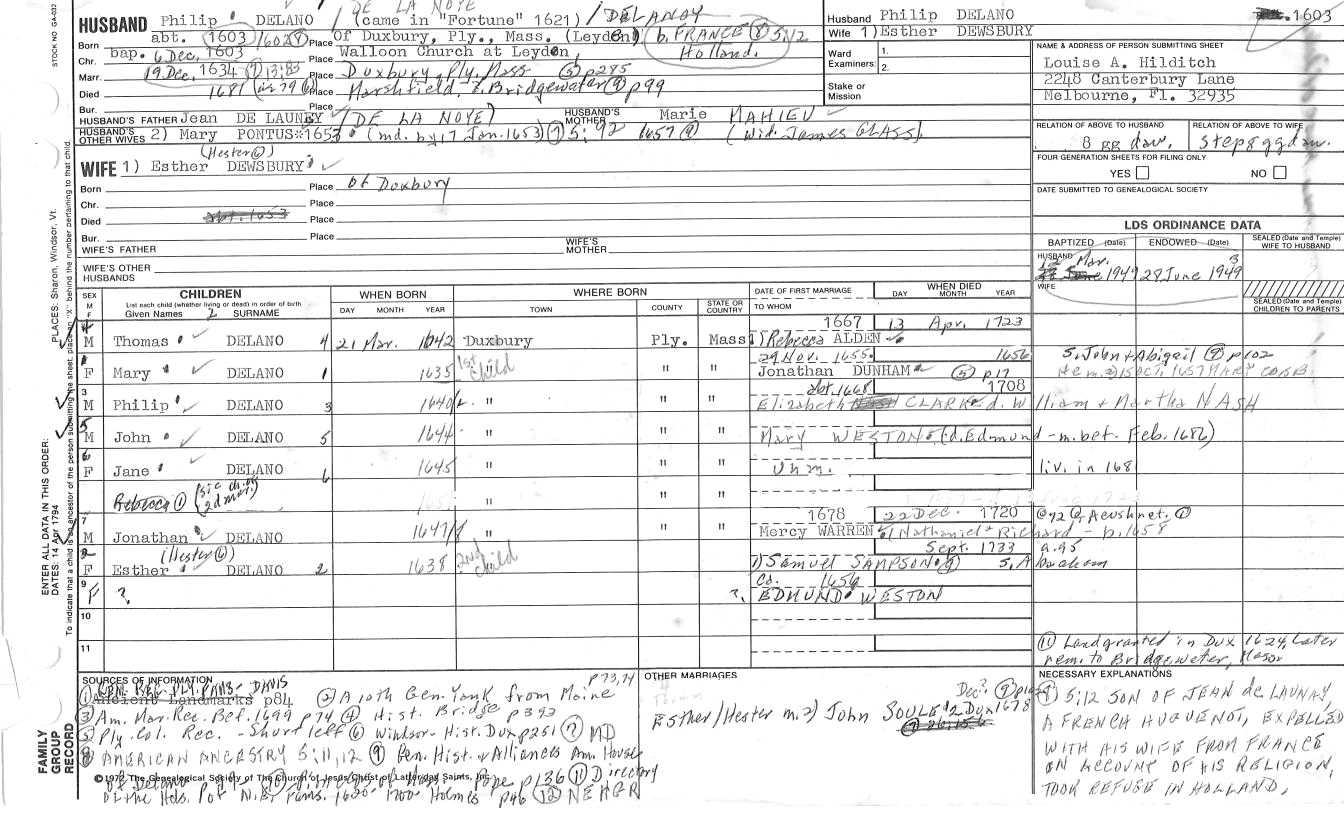 DE LA NOYE
HUSBAND Philip DELANO (came in "Fortune" 1621) / DELANOY
Born abt. 1603 1602 Place of Duxbury, Ply., Mass. (Leyden) b. FRANCE 5:12
Chr. bap. 6 Dec. 1603 Place Walloon Church at Leyden, Holland.
Marr. 19 Dec. 1634 Place Duxbury, Ply, Mass p285
Died 1681 Place Marshfield, Bridgewater p99
Bur.
HUSBAND'S FATHER Jean DE LAUNEY (DE LA NOYE) HUSBAND'S MOTHER Marie MAHIEU
HUSBAND'S OTHER WIVES 2) Mary PONTUS 1653 (md. by 17 Jan. 1653) 5:92 1657 (wid. James GLASS)
(Hester)
WIFE 1) Esther DEWSBURY
Born Place of Duxbury
Chr. Place
Died abt. 1653 Place
Bur. Place
WIFE'S FATHER WIFE'S MOTHER
WIFE'S OTHER HUSBANDS
Husband Philip DELANO 1603
Wife 1) Esther DEWSBURY
Ward Examiners 1.
2.
Stake or Mission
NAME & ADDRESS OF PERSON SUBMITTING SHEET
Louise A. Hilditch
2248 Canterbury Lane
Melbourne, Fl. 32935
RELATION OF ABOVE TO HUSBAND RELATION OF ABOVE TO WIFE
8 gg dau. step 8 gg dau.
FOUR GENERATION SHEETS FOR FILING ONLY
YES NO
DATE SUBMITTED TO GENEALOGICAL SOCIETY
LDS ORDINANCE DATA
BAPTIZED (Date) ENDOWED (Date) SEALED (Date and Temple) WIFE TO HUSBAND
HUSBAND Mar. 1949 28 June 1949
WIFE
SEALED (Date and Temple) CHILDREN TO PARENTS
SEX M F CHILDREN WHEN BORN WHERE BORN DATE OF FIRST MARRIAGE WHEN DIED
List each child (whether living or dead) in order of birth
Given Names SURNAME DAY MONTH YEAR TOWN COUNTY STATE OR COUNTRY TO WHOM DAY MONTH YEAR
1667 13 Apr. 1723
M Thomas DELANO 4 21 Mar. 1642 Duxbury Ply. Mass 1) Rebecca ALDEN
29 Nov. 1655 1656 S. John + Abigail p102
F Mary DELANO 1 1635 1st child " " Jonathan DUNHAM p17 He m. 2) 15 OCT. 1657 MARY COBB
3 abt. 1668 1708
M Philip DELANO 3 1640 " " " Elizabeth NASH CLARK d. William + Martha NASH
5
M John DELANO 5 1644 " " " Mary WESTON (d. Edmund - m. bet. Feb. 1686)
6
F Jane DELANO 6 1645 " " " Unm. liv. in 1681
Rebecca 2d mar.) " " "
7 1678 22 Dec. 1720 @92 Acushnet.
M Jonathan DELANO 1647/8 " " " Mercy WARREN Nathaniel + Richard - b. 1658
(Hester) Sept. 1733 a. 95
F Esther DELANO 2 1638 2nd child " " 1) Samuel SAMPSON S. Abraham
9 Co. 1656
F ? ? EDMUND WESTON
10
11
Land granted in Dux 1624, Later
rem. to Bridgewater,
SOURCES OF INFORMATION p73,74
1 GEN. REG. PLY. FAMS- DAVIS
Ancient Landmarks p84 2 A 10th Gen. Yank from Maine
3 Am. Mar. Rec. Bef. 1699 p74 4 Hist. Bridge p393
5 Ply. Col. Rec. - Shurtleff 6 Windsor- Hist. Dux p251 7 MD
8 AMERICAN ANCESTRY 5:11,12 9 Gen. Hist. + Alliances Am. House
of Delano Pope p136 11 Directory
of the Hds. of N.E. Fams. 1620-1700- Holmes p46 12 NEHGR
© 1972 The Genealogical Society of The Church of Jesus Christ of Latter-day Saints, Inc.
OTHER MARRIAGES
Esther/Hester m. 2) John SOULE Dux 1678
NECESSARY EXPLANATIONS
5:12 SON OF JEAN de LAUNAY,
A FRENCH HUGUENOT, EXPELLED
WITH HIS WIFE FROM FRANCE
ON ACCOUNT OF HIS RELIGION,
TOOK REFUGE IN HOLLAND,
STOCK NO GA-032
PLACES: Sharon, Windsor, Vt.
ENTER ALL DATA IN THIS ORDER:
DATES: 14 Apr 1794
To indicate that a child is an ancestor of the person submitting the sheet, place an "X" behind the number pertaining to that child.
FAMILY GROUP RECORD